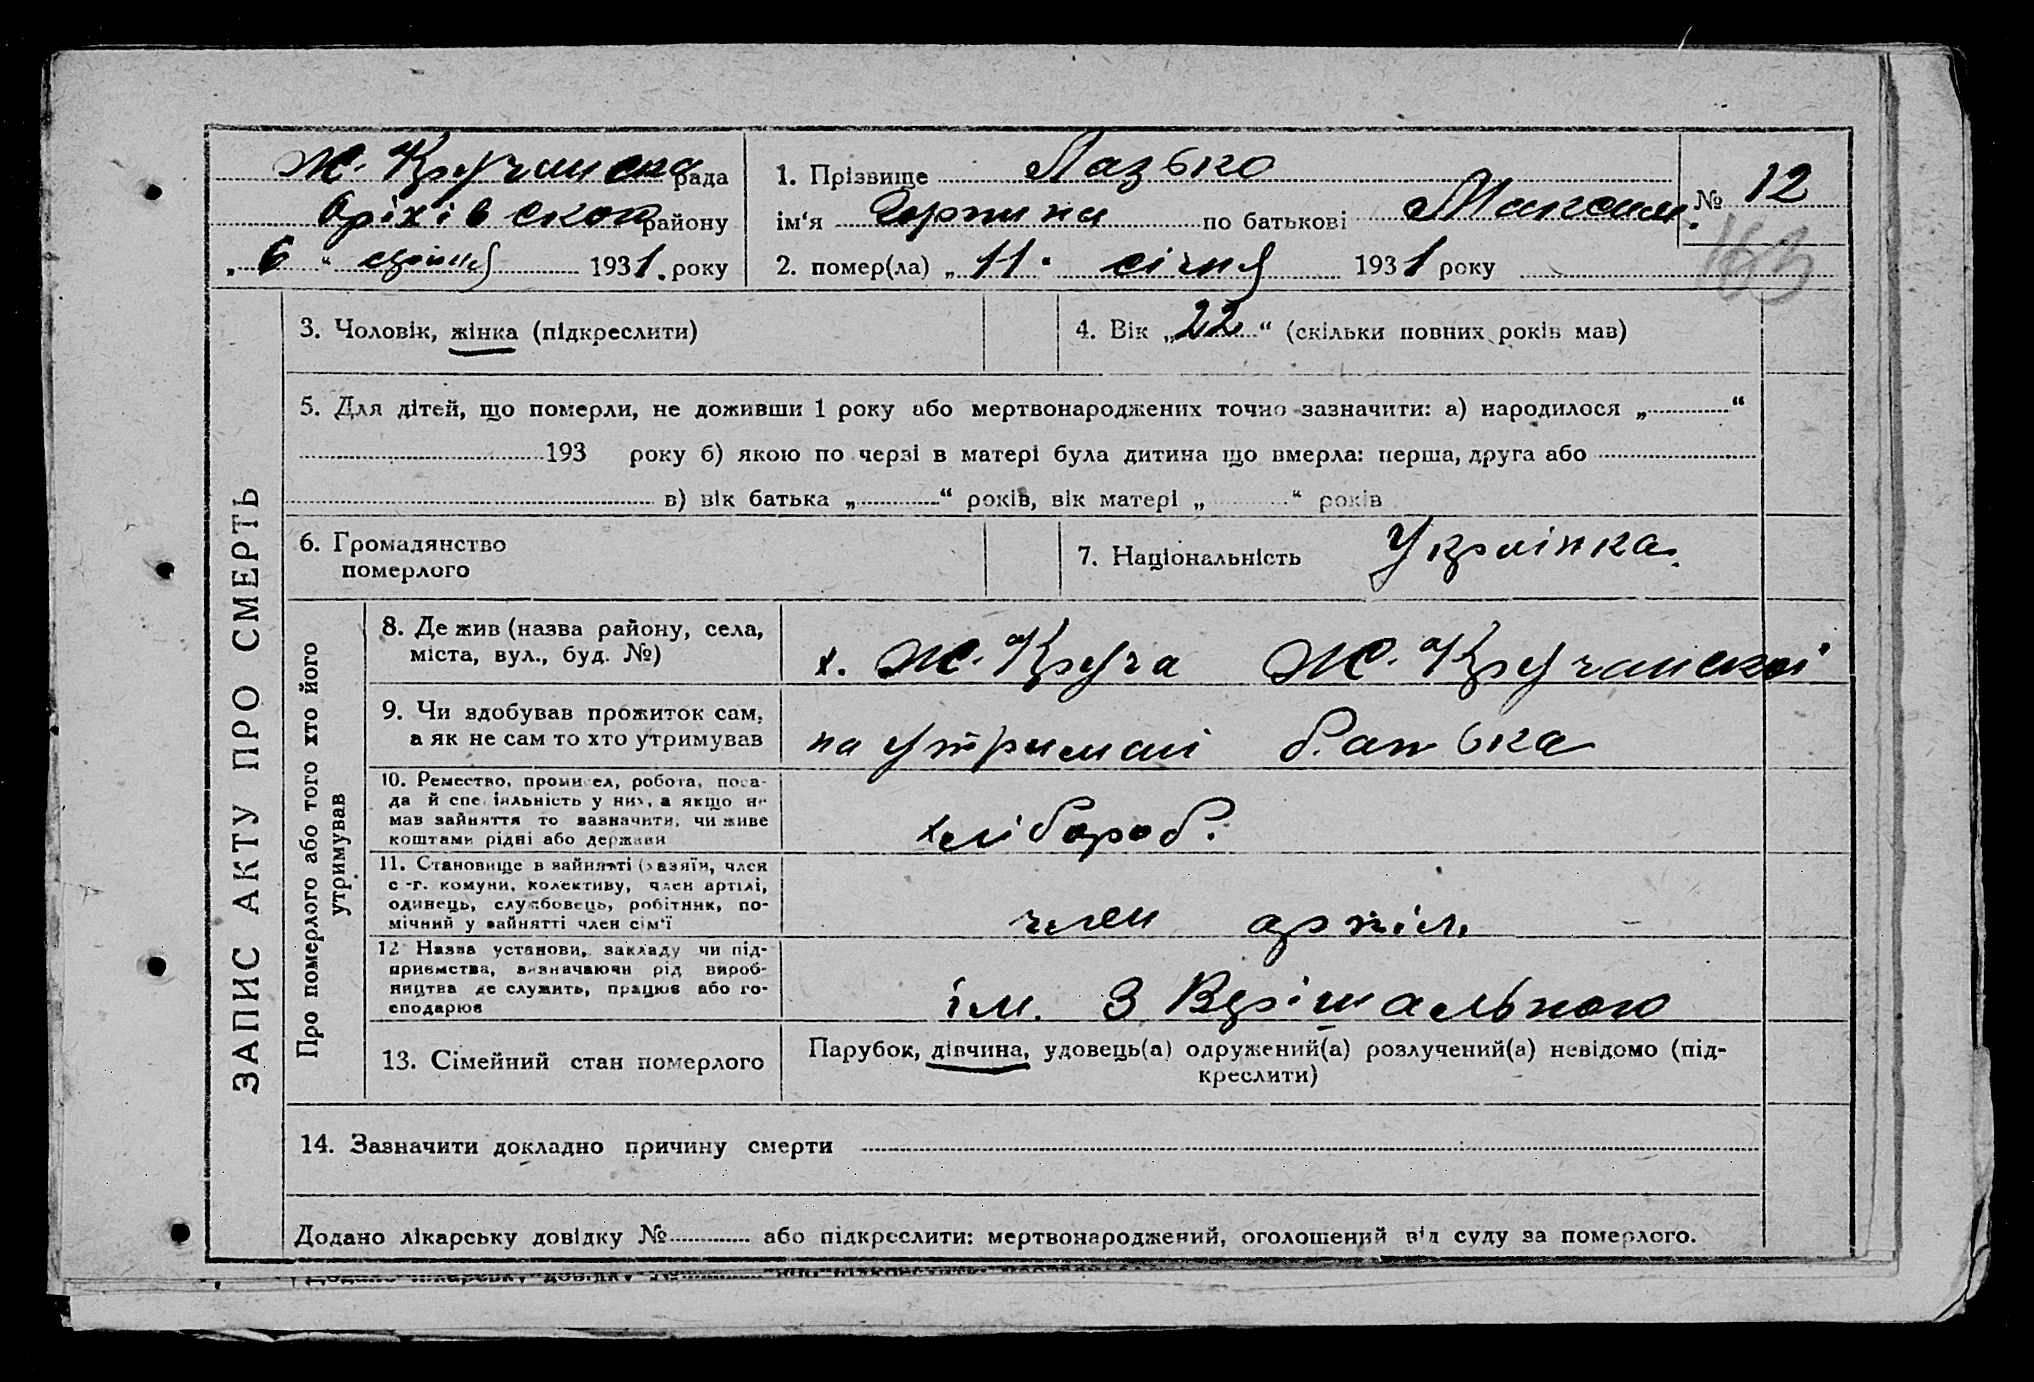 Ж. Кручанська рада
Оріхівського району
„ 6 “ 1931. року
1. Прізвище Лазько
ім‘я Горпина по батькові Максим.
2. помер(ла) „ 11 “ січня 1931 року
№ 12
163
ЗАПИС АКТУ ПРО СМЕРТЬ
3. Чоловік, жінка (підкреслити)
4. Вік „ 22 “ (скільки повних років мав)
5. Для дітей, що померли, не доживши 1 року або мертвонароджених точно зазначити: а) народилося „ “
193 року б) якою по черзі в матері була дитина що вмерла: перша, друга або
в) вік батька „ “ років, вік матері „ “ років
6. Громадянство
померлого
7. Національність Українка.
Про померлого або того хто його
утримував
8. Де жив (назва району, села,
міста, вул., буд. №)
х. Ж. Круча Ж. Кручанської
9. Чи здобував прожиток сам,
а як не сам то хто утримував
на утримані батька
10. Ремество, промисел, робота, поса-
да й спеціяльність у них, а якщо не
мав зайняття то зазначити, чи живе
коштами рідні або держави
хлібороб.
11. Становище в зайнятті (хазяїн, член
с.-г. комуни, колективу, член артілі,
одинець, службовець, робітник, по-
мічний у зайнятті член сім‘ї
член артіл.
12 Назва установи, закладу чи під-
приємства, визначаючи рід вироб-
ництва де служить, працює або го-
сподарює
ім. 3 Врішального
13. Сімейний стан померлого
Парубок, дівчина, удовець(а) одружений(а) розлучений(а) невідомо (під-
креслити)
14. Зазначити докладно причину смерти
Додано лікарську довідку № або підкреслити: мертвонароджений, оголошений від суду за померлого.